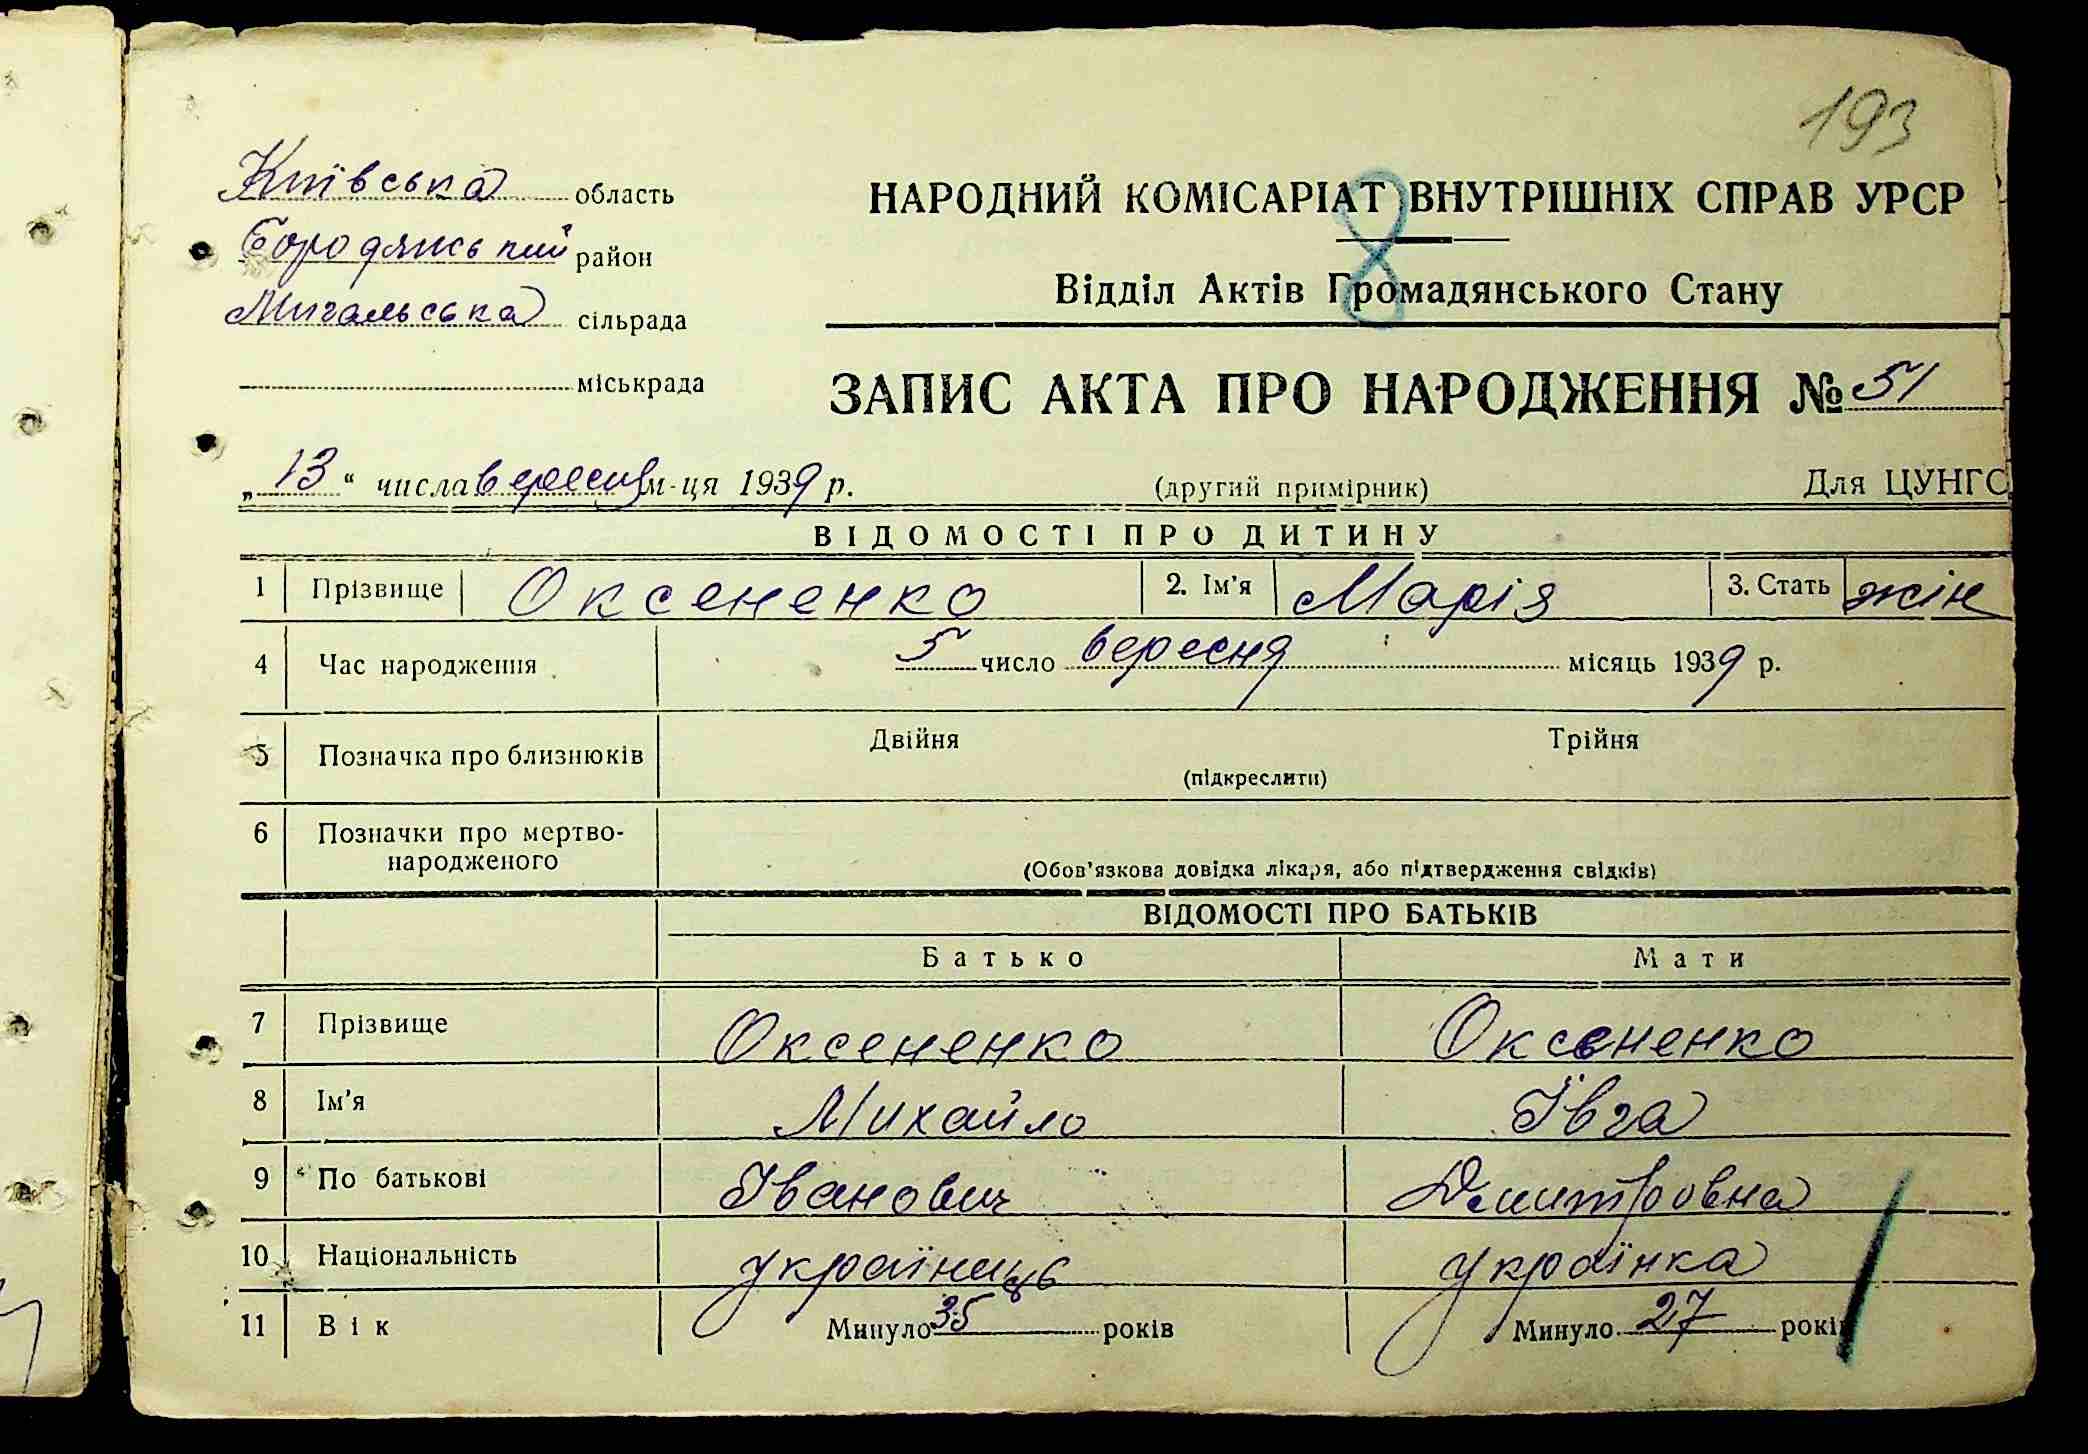 193
Київська область
Бородянський район
Мигальська сільрада
міськрада
НАРОДНИЙ КОМІСАРІАТ ВНУТРІШНІХ СПРАВ УРСР
8
Відділ Актів Громадянського Стану
ЗАПИС АКТА ПРО НАРОДЖЕННЯ № 51
„13“ числа вересня м-ця 1939 р. (другий примірник) Для ЦУНГС
ВІДОМОСТІ ПРО ДИТИНУ
1 Прізвище Оксененко 2. Ім'я Марія 3. Стать жін
4 Час народження 5 число вересня місяць 1939 р.
5 Позначка про близнюків Двійня Трійня
(підкреслити)
6 Позначки про мертво-
народженого
(Обов'язкова довідка лікаря, або підтвердження свідків)
ВІДОМОСТІ ПРО БАТЬКІВ
Батько Мати
7 Прізвище Оксененко Оксененко
8 Ім'я Михайло Ївга
9 По батькові Іванович Дмитровна
10 Національність українець українка
11 Вік Минуло 35 років Минуло 27 років